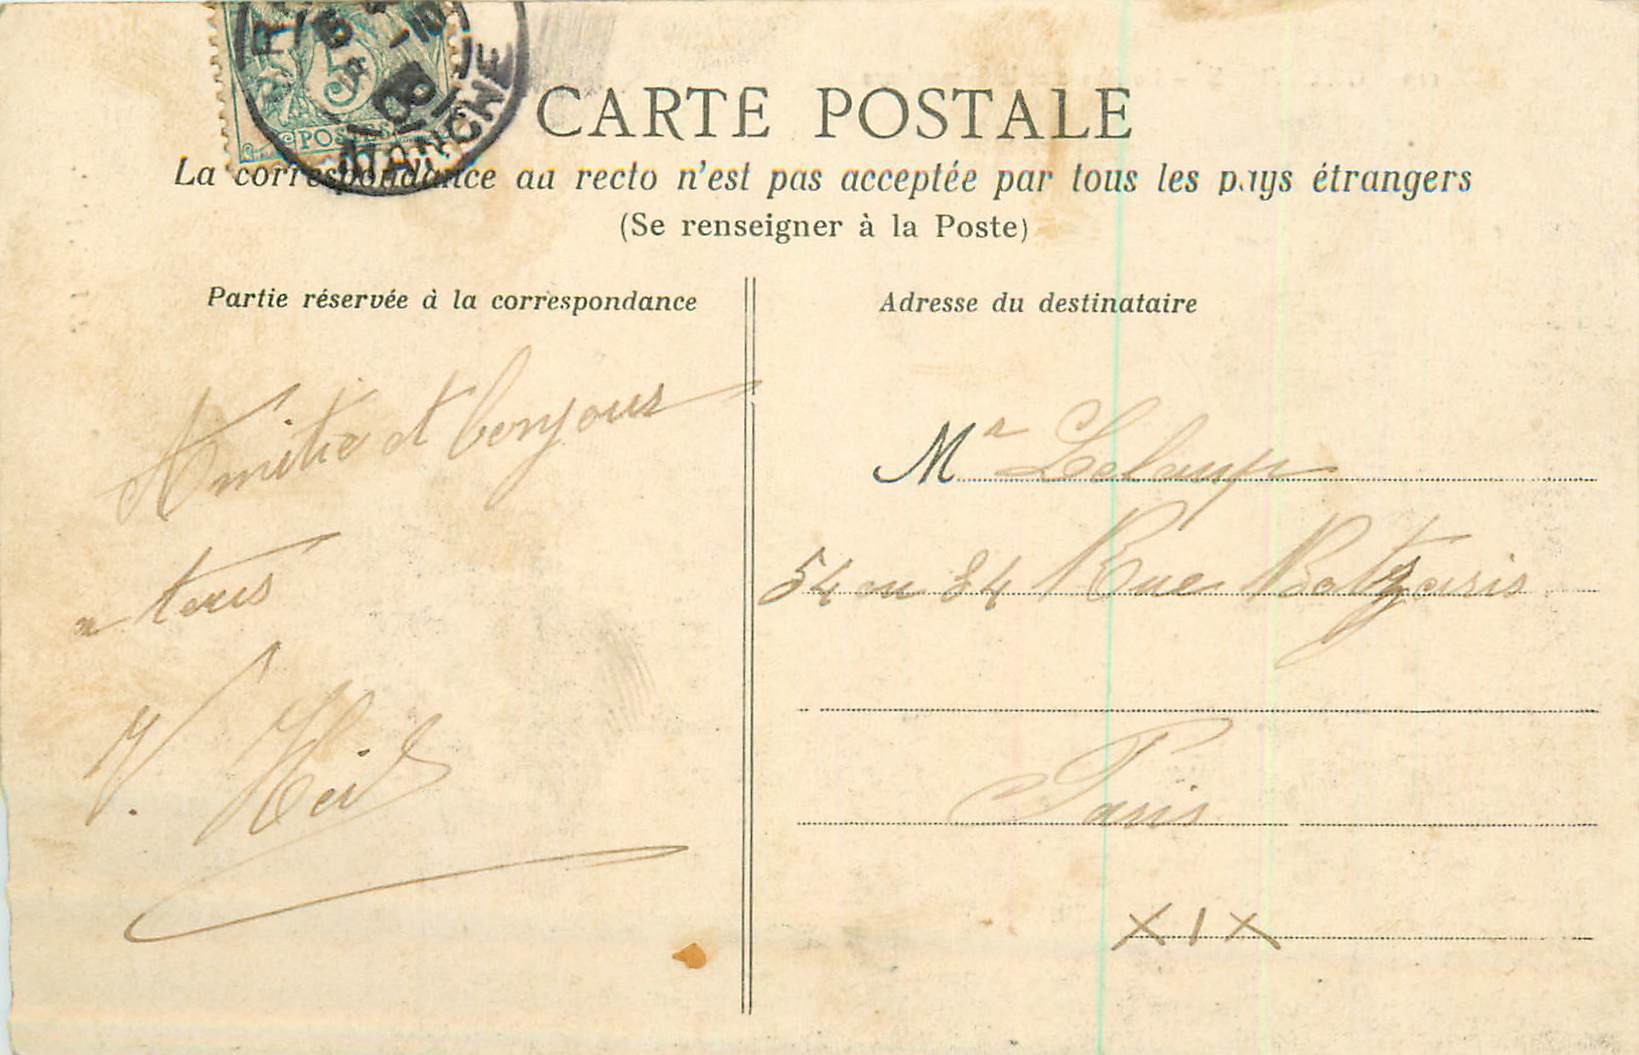 5
POSTES
MANCHE
CARTE POSTALE
La correspondance au recto n'est pas acceptée par tous les pays étrangers
(Se renseigner à la Poste)
Partie réservée à la correspondance
Amitié et bonjours
a tous
V. Heil
Adresse du destinataire
Mr Leloup
54 ou 84 Rue Botzaris
Paris
XIX